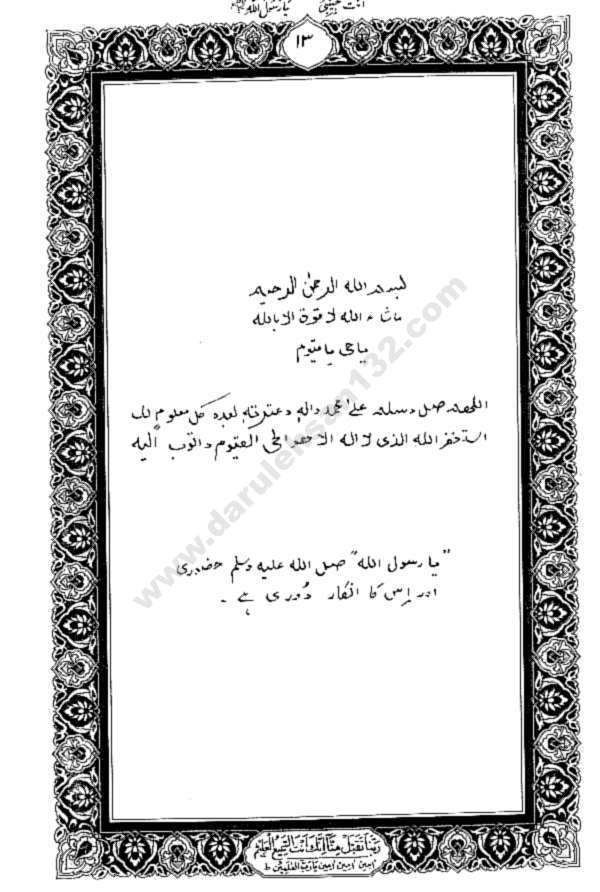 انت حبیبی یا رسول اللہ
۱۳
بسم الله الرحمن الرحیم
ماشاء الله لا قوة الا بالله
یا حی یا قیوم
اللهم صل وسلم علی محمد واله وعترته بعدد کل معلوم لک
استغفر الله الذی لا اله الا هو الحی القیوم واتوب الیه
"یا رسول الله" صلی الله علیه وسلم حضوری
اور اِس کا انکار دُوری ہے ۔
www.darulehsan132.com
ربنا تقبل منا انک انت السمیع العلیم
امین امین امین یا رب العلمین ط